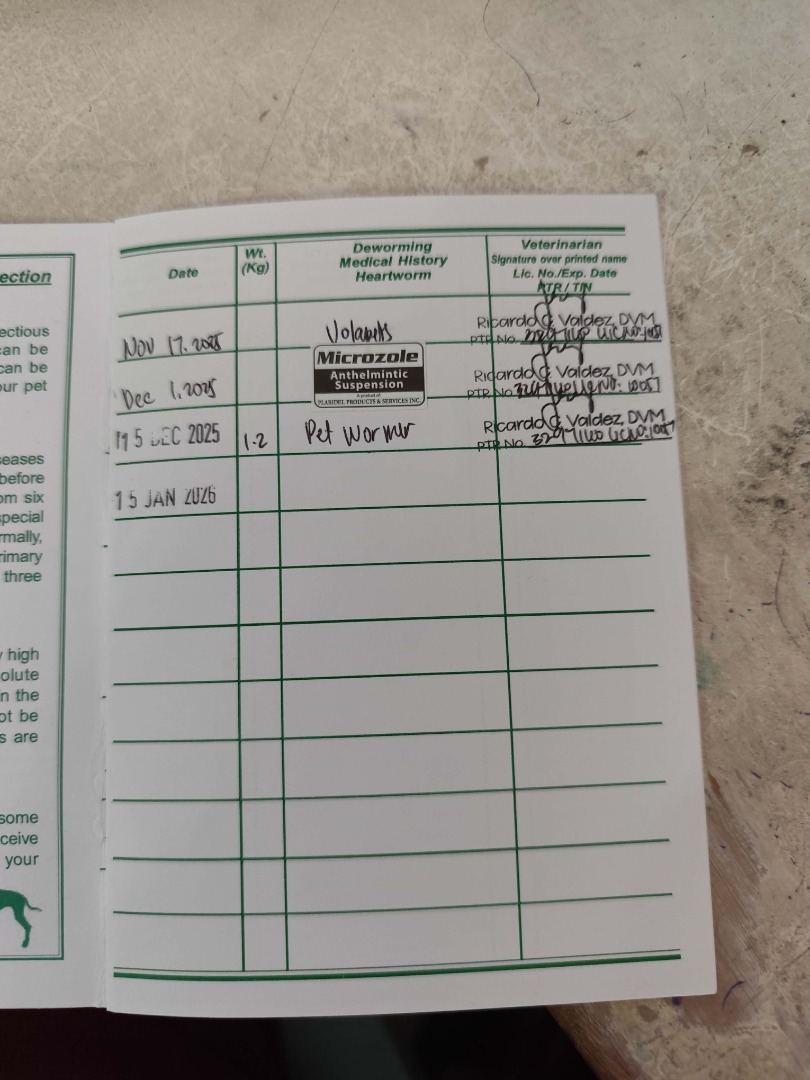 ection
ectious
can be
can be
our pet
eases
before
om six
special
rmally,
rimary
three
y high
olute
n the
ot be
s are
some
ceive
your
Date
Wt.
(Kg)
Deworming
Medical History
Heartworm
Veterinarian
Signature over printed name
Lic. No./Exp. Date
PTR / TIN
Nov 17. 2025
Ricardo C. Valdez, DVM
PTR No.
Dec 1. 2025
Microzole
Anthelmintic
Suspension
A product of
PLARIDEL PRODUCTS & SERVICES INC.
Ricardo C. Valdez, DVM
PTR No.
15 DEC 2025
1.2
Pet Wormer
Ricardo C. Valdez, DVM
PTR No.
15 JAN 2026